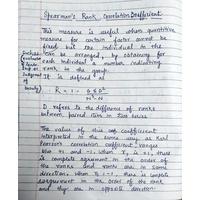 Spearman's Rank Correlation Coefficient
This measure is useful when quantitative
measure for certain factor cannot be
fixed but the individual in the
can be arranged, by obtaining for
each individual a number indicating
rank in the group.
It is defined as
beauty
R = 1 - 6ΣD²
N³-N
D refers to the difference of ranks
between paired item in two series
The value of this coefficient
interpreted in the same way as Karl
Pearson's correlation coefficient ranges
b/w +1 and -1. when r is +1, there
is complete agreement in the order of
the ranks and ranks are in same
direction. When r is -1, there is complete
disagreement in the order of the rank
and they are in opposite direction.